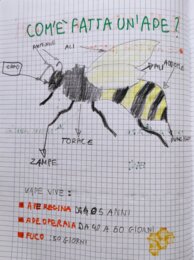 COM'È FATTA UN'APE?
ANTENNE
ALI
CAPO
ADDOME
TORACE
ZAMPE
L'APE VIVE:
APE REGINA DA 4 5 ANNI
APE OPERAIA DA 40 A 60 GIORNI
FUCO: 50 GIORNI